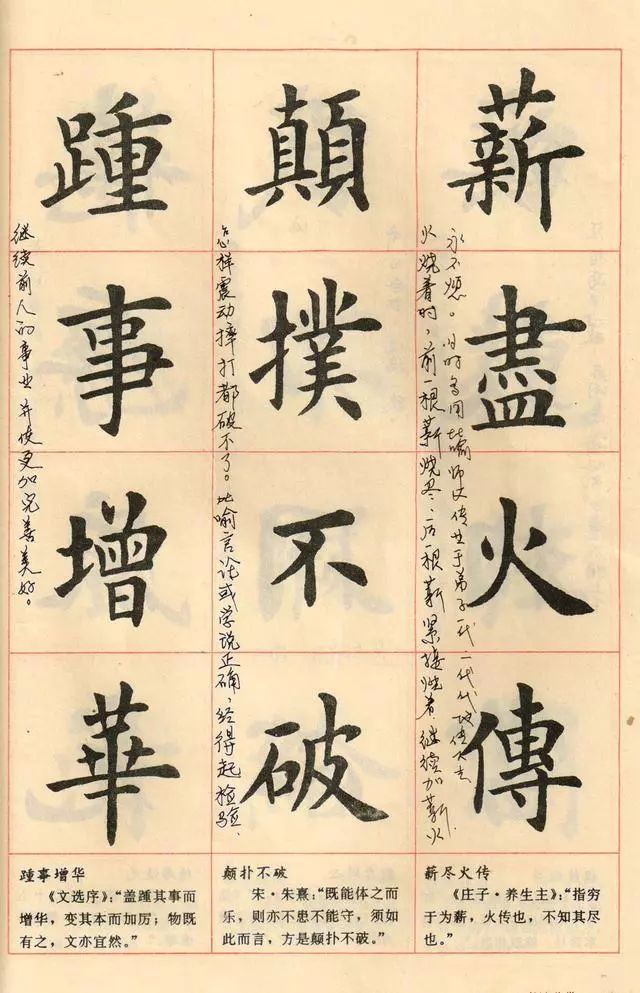 薪盡火傳
火烧着时，前一根薪烧尽，后一根薪紧接烧着，继续加薪，火
永不熄。旧时多用比喻师父传业于弟子一代一代地传下去
薪尽火传
《庄子·养生主》：“指穷
于为薪，火传也，不知其尽
也。”
顛撲不破
怎样震动摔打都破不了。比喻言论或学说正确，经得起检验.
颠扑不破
宋·朱熹：“既能体之而
乐，则亦不患不能守，须如
此而言，方是颠扑不破。”
踵事增華
继续前人的事业并使更加完善美好。
踵事增华
《文选序》：“盖踵其事而
增华，变其本而加厉；物既
有之，文亦宜然。”